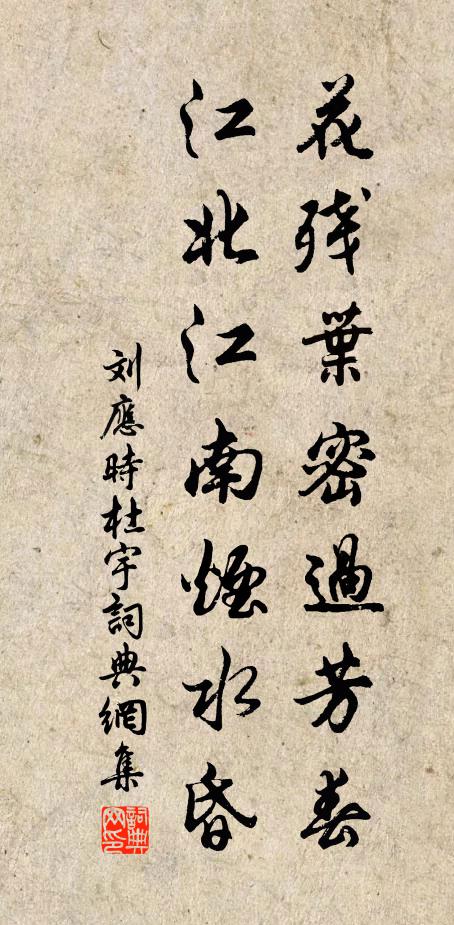 花残葉密過芳春
江北江南煙水昏
刘應時杜宇詞典網集
詞典網印